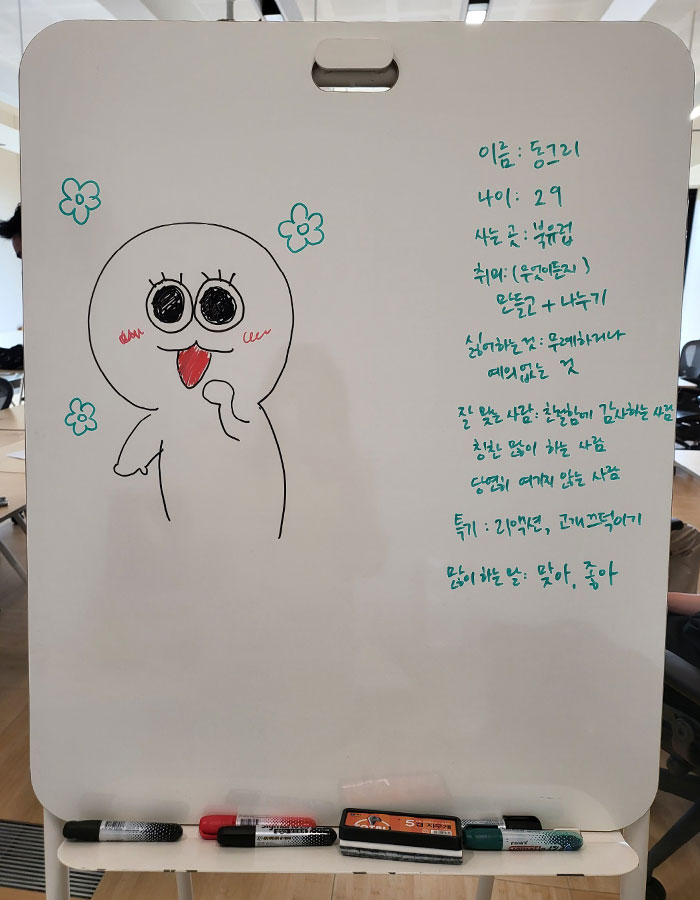 이름: 동그리
나이: 29
사는 곳: 북유럽
취미: (무엇이든지)
만들고 + 나누기
싫어하는 것: 무례하거나
예의없는 것
잘 맞는 사람: 친절함에 감사하는 사람
칭찬 많이 하는 사람
당연히 여기지 않는 사람
특기: 리액션, 고개끄덕이기
많이 하는 말: 맞아, 좋아